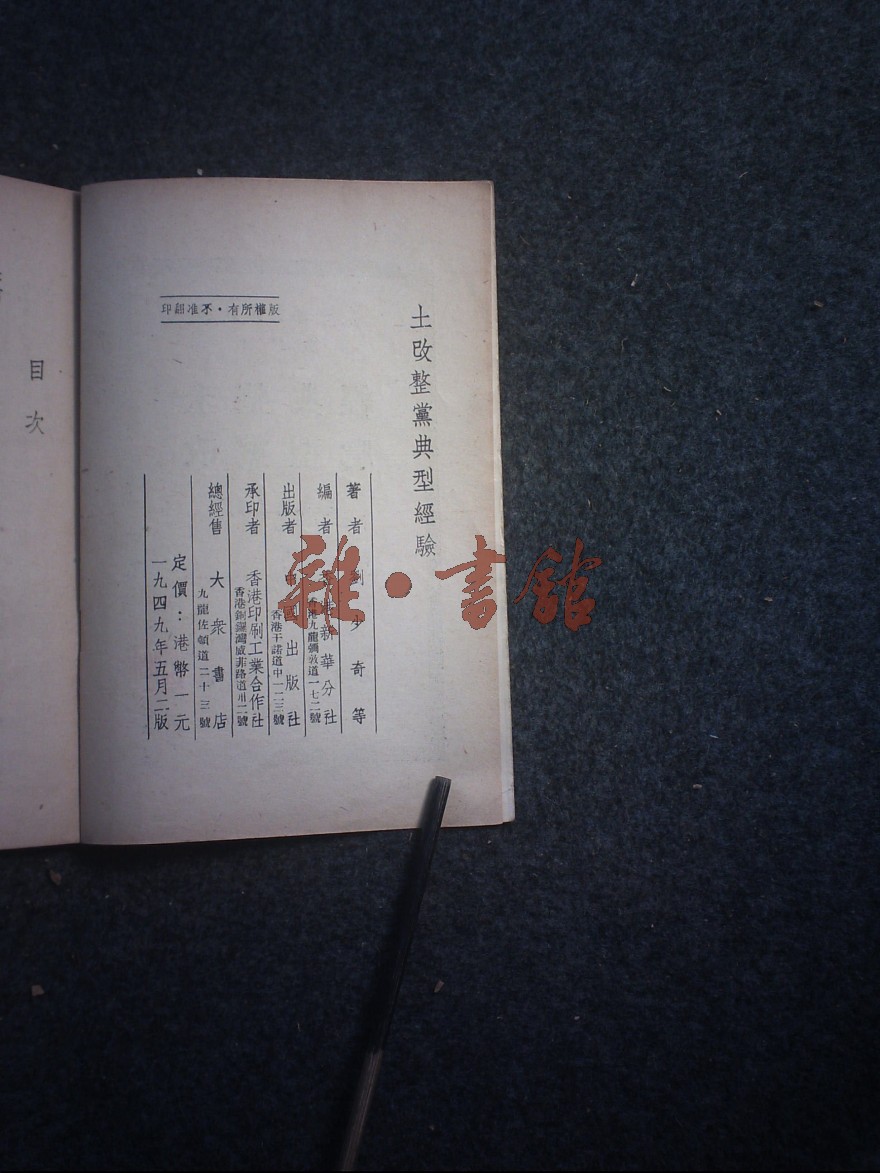 土改整黨典型經驗
版權所有·不准翻印
著者 劉少奇等
編者 新華分社
香港九龍彌敦道一七二號
出版者 中國出版社
香港干諾道中一二三號
承印者 香港印刷工業合作社
香港銅鑼灣威非路道卅二號
總經售 大衆書店
九龍佐頓道二十三號
定價：港幣一元
一九四九年五月二版
目次
雜·書館